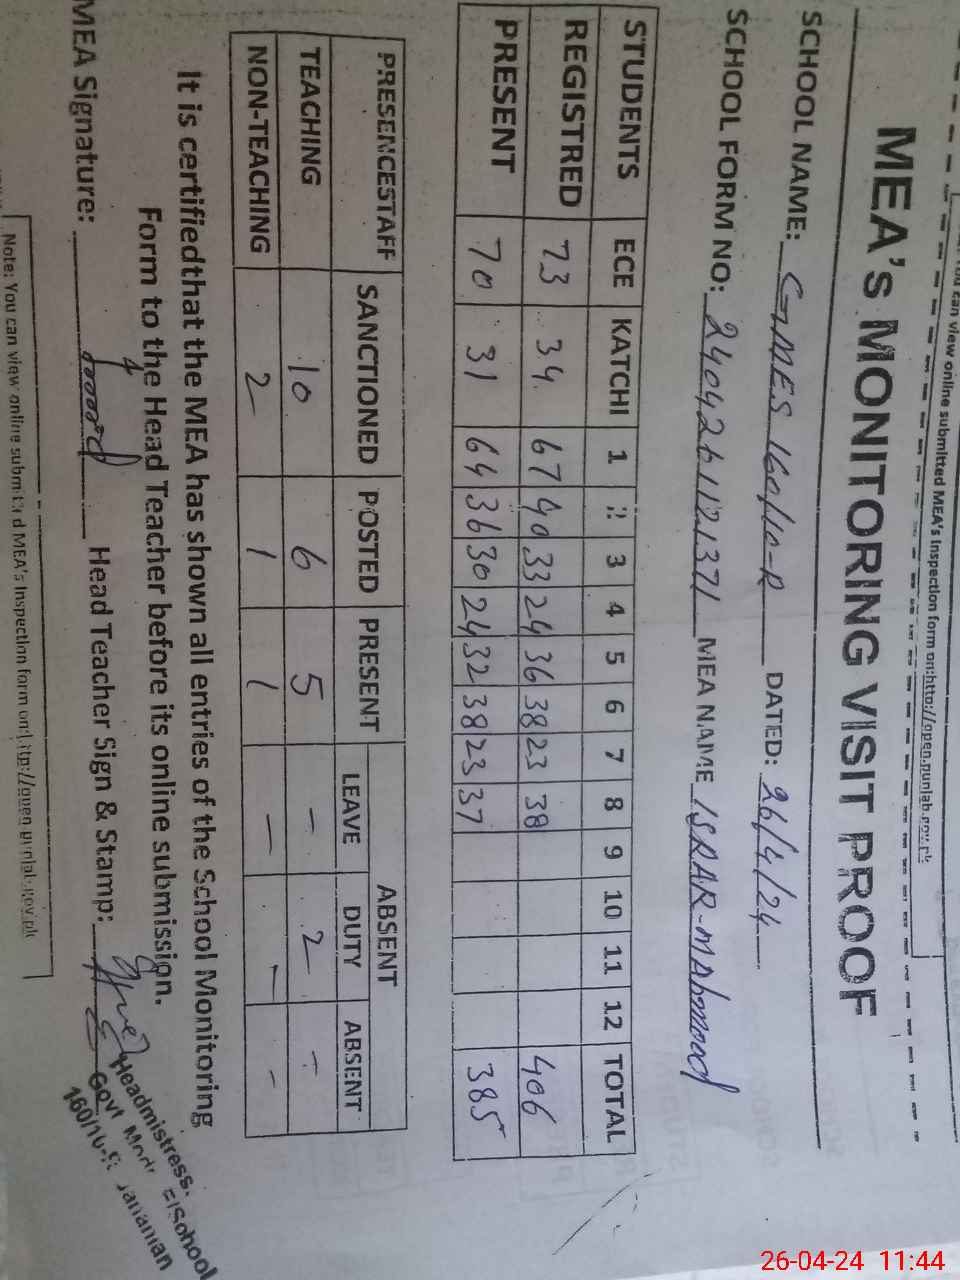 You can view online submitted MEA's Inspection form on:http://open.punjab.gov.pk
MEA's MONITORING VISIT PROOF
SCHOOL NAME: GMES 160/10-R DATED: 26/4/24
SCHOOL FORM NO: MEA NAME ISRAR-MAhmood
STUDENTS ECE KATCHI 1 2 3 4 5 6 7 8 9 10 11 12 TOTAL
REGISTRED 73 34 67 40 33 24 36 38 23 38 406
PRESENT 70 31 64 36 30 24 32 38 23 37 385
PRESENCESTAFF SANCTIONED POSTED PRESENT ABSENT
LEAVE DUTY ABSENT
TEACHING 10 6 5 - 2 -
NON-TEACHING 2 1 1 - - -
It is certifiedthat the MEA has shown all entries of the School Monitoring
Form to the Head Teacher before its online submission.
MEA Signature: Head Teacher Sign & Stamp:
Headmistress.
Govt School
160/10-R Jahanian
Note: You can view online submitted MEA's Inspection form on:http://open.punjab.gov.pk
26-04-24 11:44